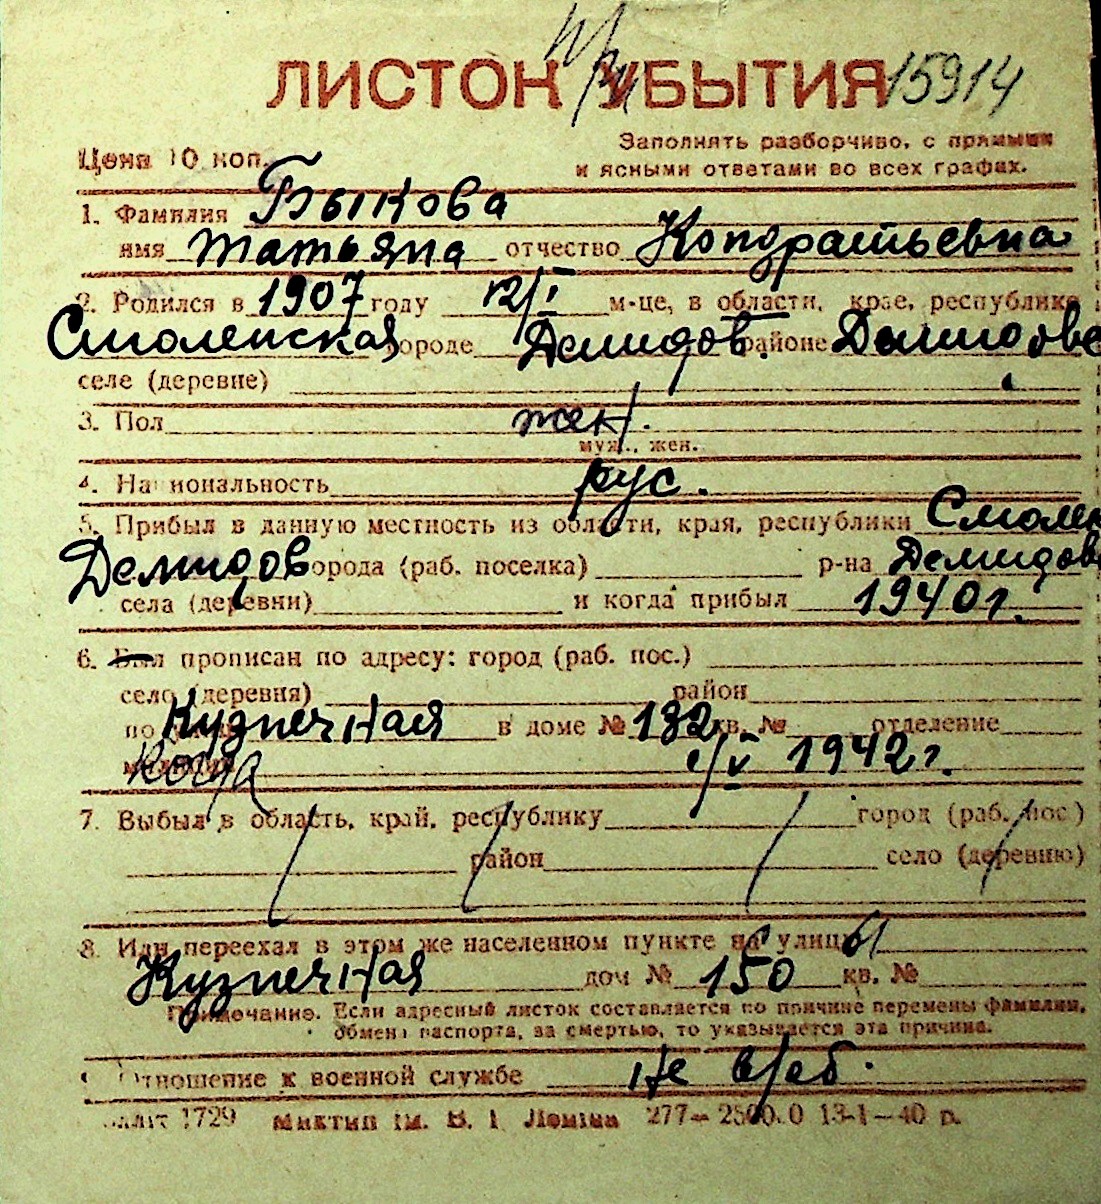 ЛИСТОК УБЫТИЯ 15914
Цена 10 коп.
Заполнять разборчиво, с прямыми
и ясными ответами во всех графах.
1. Фамилия Быкова
имя Татьяна отчество Кондратьевна
2. Родился в 1907 году 12/I м-це, в области, крае, республике
Смоленская городе Демидов. районе Демидовс
селе (деревне)
3. Пол жен.
муж., жен.
4. Национальность рус.
5. Прибыл в данную местность из области, края, республики Смолен
Демидов города (раб. поселка) р-на Демидовс
села (деревни) и когда прибыл 1940 г.
6. Был прописан по адресу: город (раб. пос.)
село (деревня) район
по Кузнечная в доме № 132 кв. № отделение
милиции когда 1/V 1942 г.
7. Выбыл в область, край, республику город (раб. пос.)
район село (деревню)
8. Или переехал в этом же населенном пункте на улицы
Кузнечная дом № 150 кв. №
Примечание. Если адресный листок составляется по причине перемены фамилии,
обмена паспорта, за смертью, то указывается эта причина.
Отношение к военной службе не вреб.
1729 им. В. І Леніна 277— 2500.0 13-1—40 р.